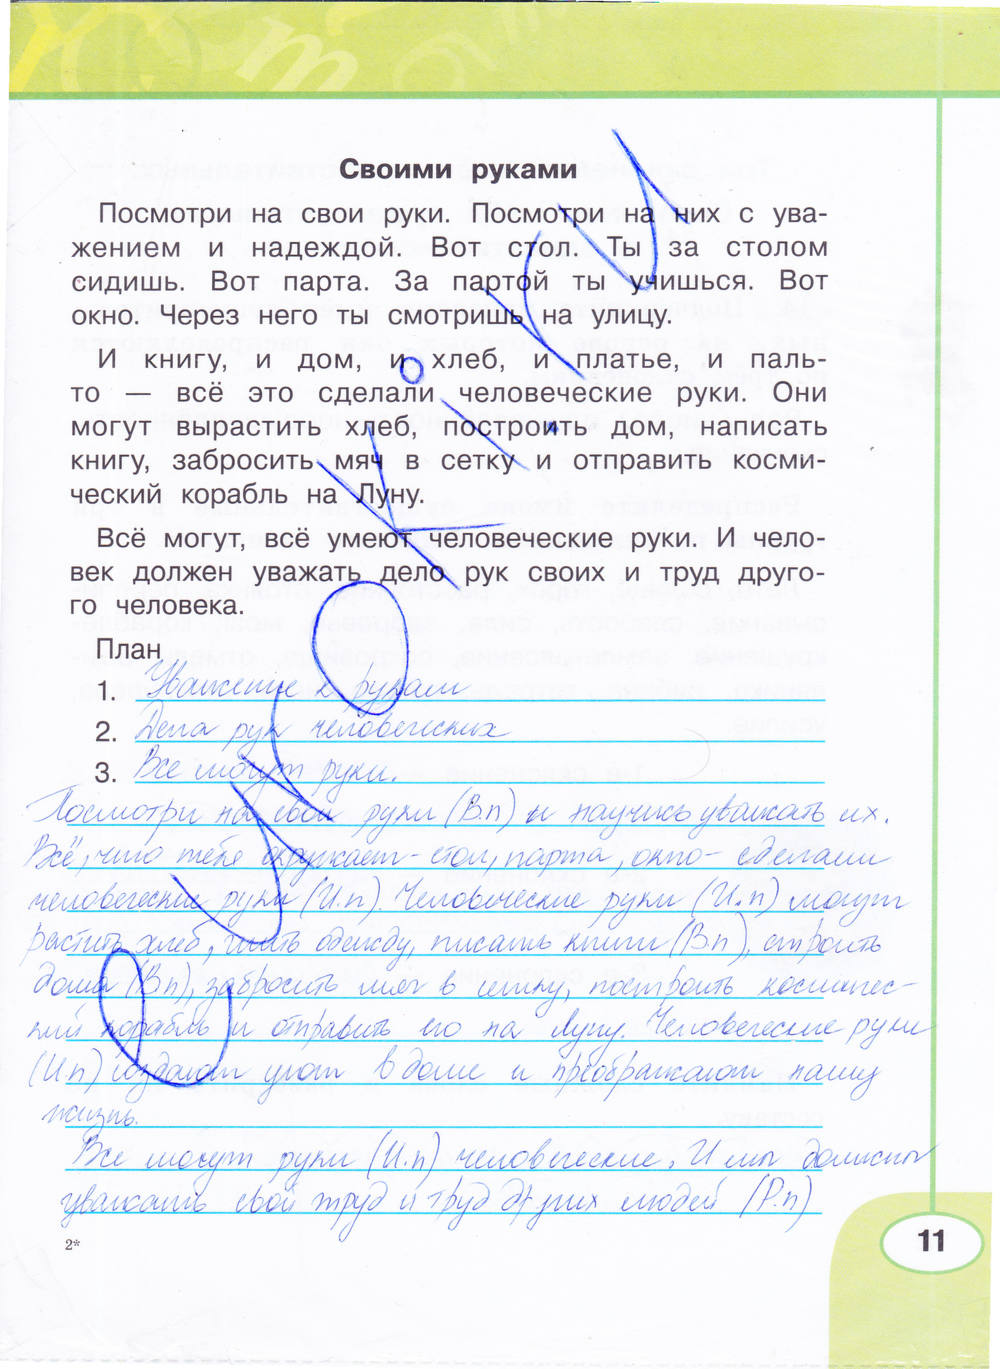 Своими руками
Посмотри на свои руки. Посмотри на них с ува-
жением и надеждой. Вот стол. Ты за столом
сидишь. Вот парта. За партой ты учишься. Вот
окно. Через него ты смотришь на улицу.
И книгу, и дом, и хлеб, и платье, и паль-
то — всё это сделали человеческие руки. Они
могут вырастить хлеб, построить дом, написать
книгу, забросить мяч в сетку и отправить косми-
ческий корабль на Луну.
Всё могут, всё умеют человеческие руки. И чело-
век должен уважать дело рук своих и труд друго-
го человека.
План
1. Уважение к рукам
2. Дела рук человеческих
3. Все могут руки.
Посмотри на свои руки (В.п) и научись уважать их.
Всё, что тебя окружает - стол, парта, окно - сделали
человеческие руки (И.п). Человеческие руки (И.п) могут
растить хлеб, шить одежду, писать книги (Вп), строить
дома (Вп), забросить мяч в сетку, построить космичес-
кий корабль и отправить его на Луну. Человеческие руки
(Ип) создают уют в доме и преображают нашу
жизнь.
Все могут руки (И.п) человеческие. И мы должны
уважать свой труд и труд других людей (Р.п)
2*
11